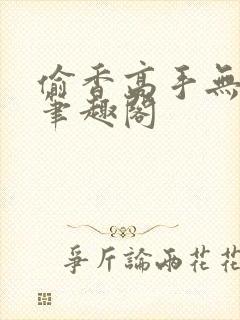 偷香高手無
筆趣閣
爭斤論兩花花